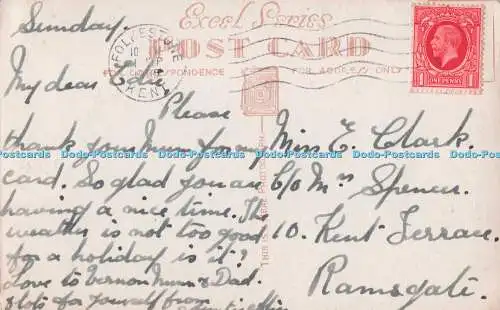 Excel Series
POST CARD
FOR CORRESPONDENCE
FOR ADDRESS ONLY
FOLKESTONE
KENT
ONE PENNY
Sunday.
My dear
Please
thank your Mum for my
card. So glad you are
having a nice time. The
weather is not too good
for a holiday is it?
Love to Vernon Mum & Dad.
& lots for yourself from
Miss E. Clark.
C/o Mrs Spencer.
10. Kent Terrace.
Ramsgate.
Dodo-Postcards Dodo-Postcards Dodo-Postcards Dodo-Postcards Dodo-Postcards